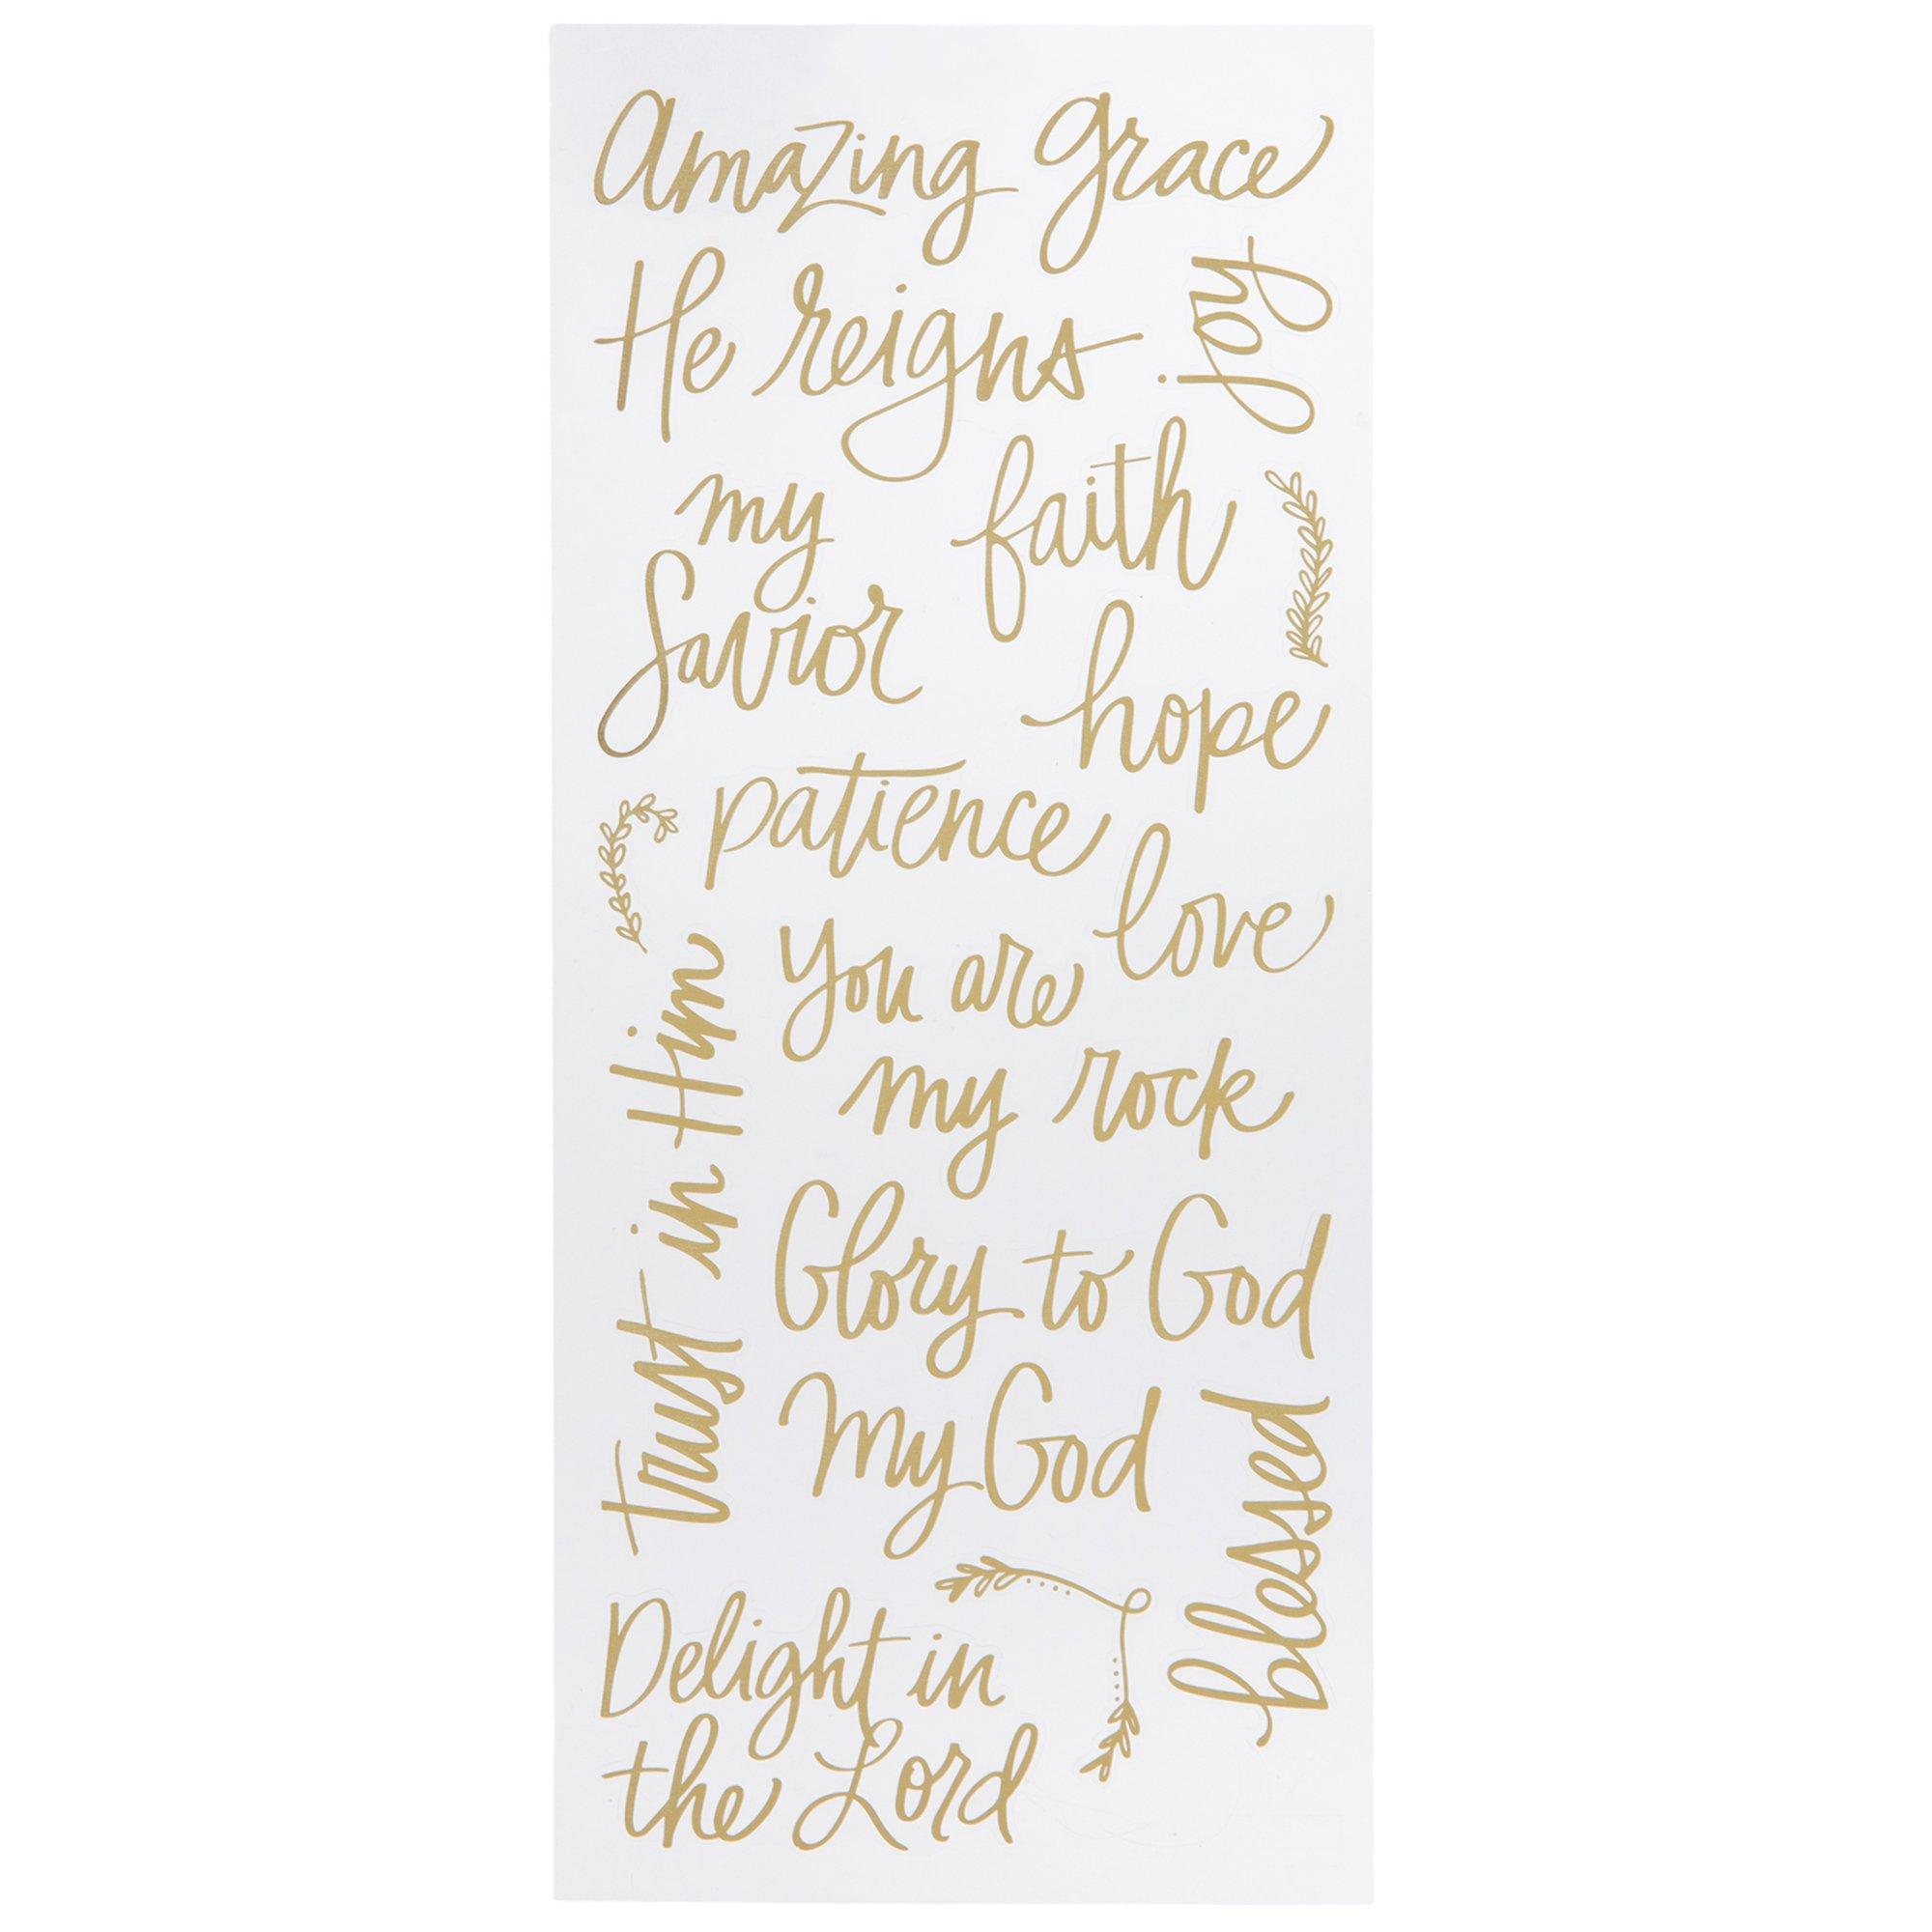 Amazing grace
He reigns
joy
my
Savior
faith
hope
patience
love
You are
my rock
Trust in Him
Glory to God
My God
blessed
Delight in
the Lord